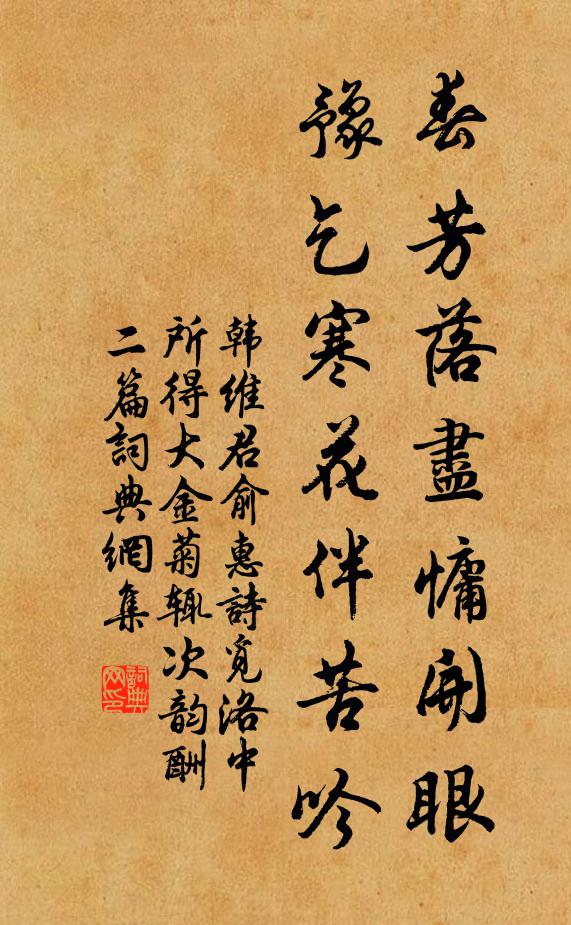 春芳落盡慵開眼
豫乞寒花伴苦吟
韩維君俞惠詩覓洛中
所得大金菊辄次韵酬
二篇詞典網集
詞典
网印